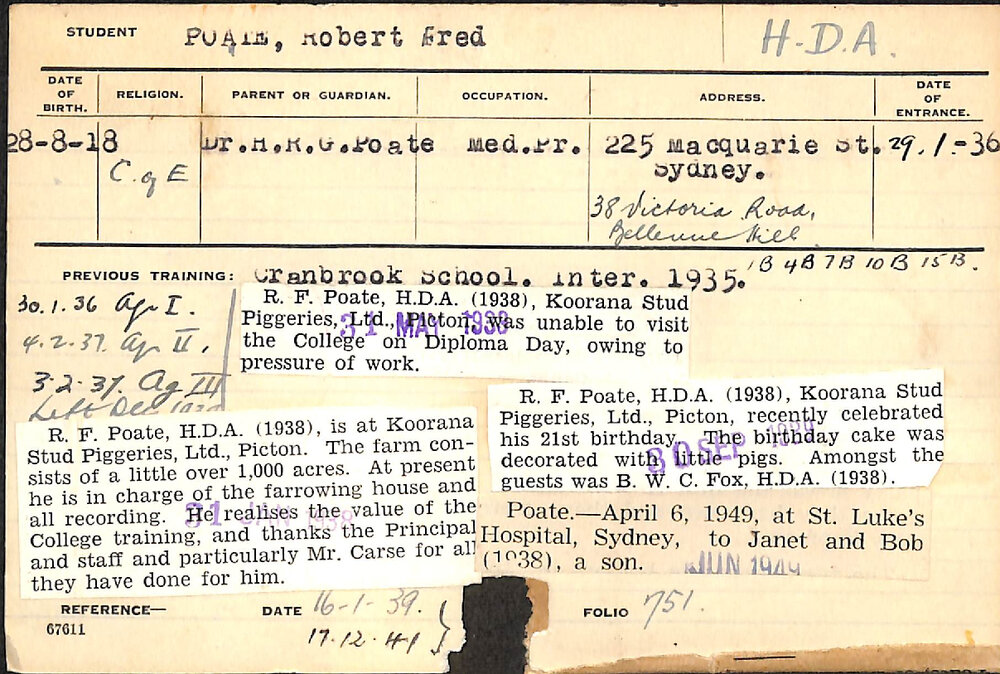 STUDENT POATE, Robert Fred H.D.A.
DATE OF BIRTH. RELIGION. PARENT OR GUARDIAN. OCCUPATION. ADDRESS. DATE OF ENTRANCE.
28-8-18 C of E Dr.H.R.G.Poate Med.Pr. 225 Macquarie St. 29.1.-36
Sydney.
38 Victoria Road,
Bellevue Hill
1B 4B 7B 10B 15B.
PREVIOUS TRAINING: Cranbrook School. Inter. 1935.
30.1.36 Ag I.
4.2.37. Ag II.
3.2.37. Ag III
Left Dec
R. F. Poate, H.D.A. (1938), Koorana Stud
Piggeries, Ltd., Picton, was unable to visit
the College on Diploma Day, owing to
pressure of work.
31 MAY 1938
R. F. Poate, H.D.A. (1938), Koorana Stud
Piggeries, Ltd., Picton, recently celebrated
his 21st birthday. The birthday cake was
decorated with little pigs. Amongst the
guests was B. W. C. Fox, H.D.A. (1938).
30 SEP
R. F. Poate, H.D.A. (1938), is at Koorana
Stud Piggeries, Ltd., Picton. The farm con-
sists of a little over 1,000 acres. At present
he is in charge of the farrowing house and
all recording. He realises the value of the
College training, and thanks the Principal
and staff and particularly Mr. Carse for all
they have done for him.
31 JAN
Poate.—April 6, 1949, at St. Luke's
Hospital, Sydney, to Janet and Bob
(1938), a son.
JUN 1949
REFERENCE— DATE 16-1-39. FOLIO 751.
17.12.41
67611